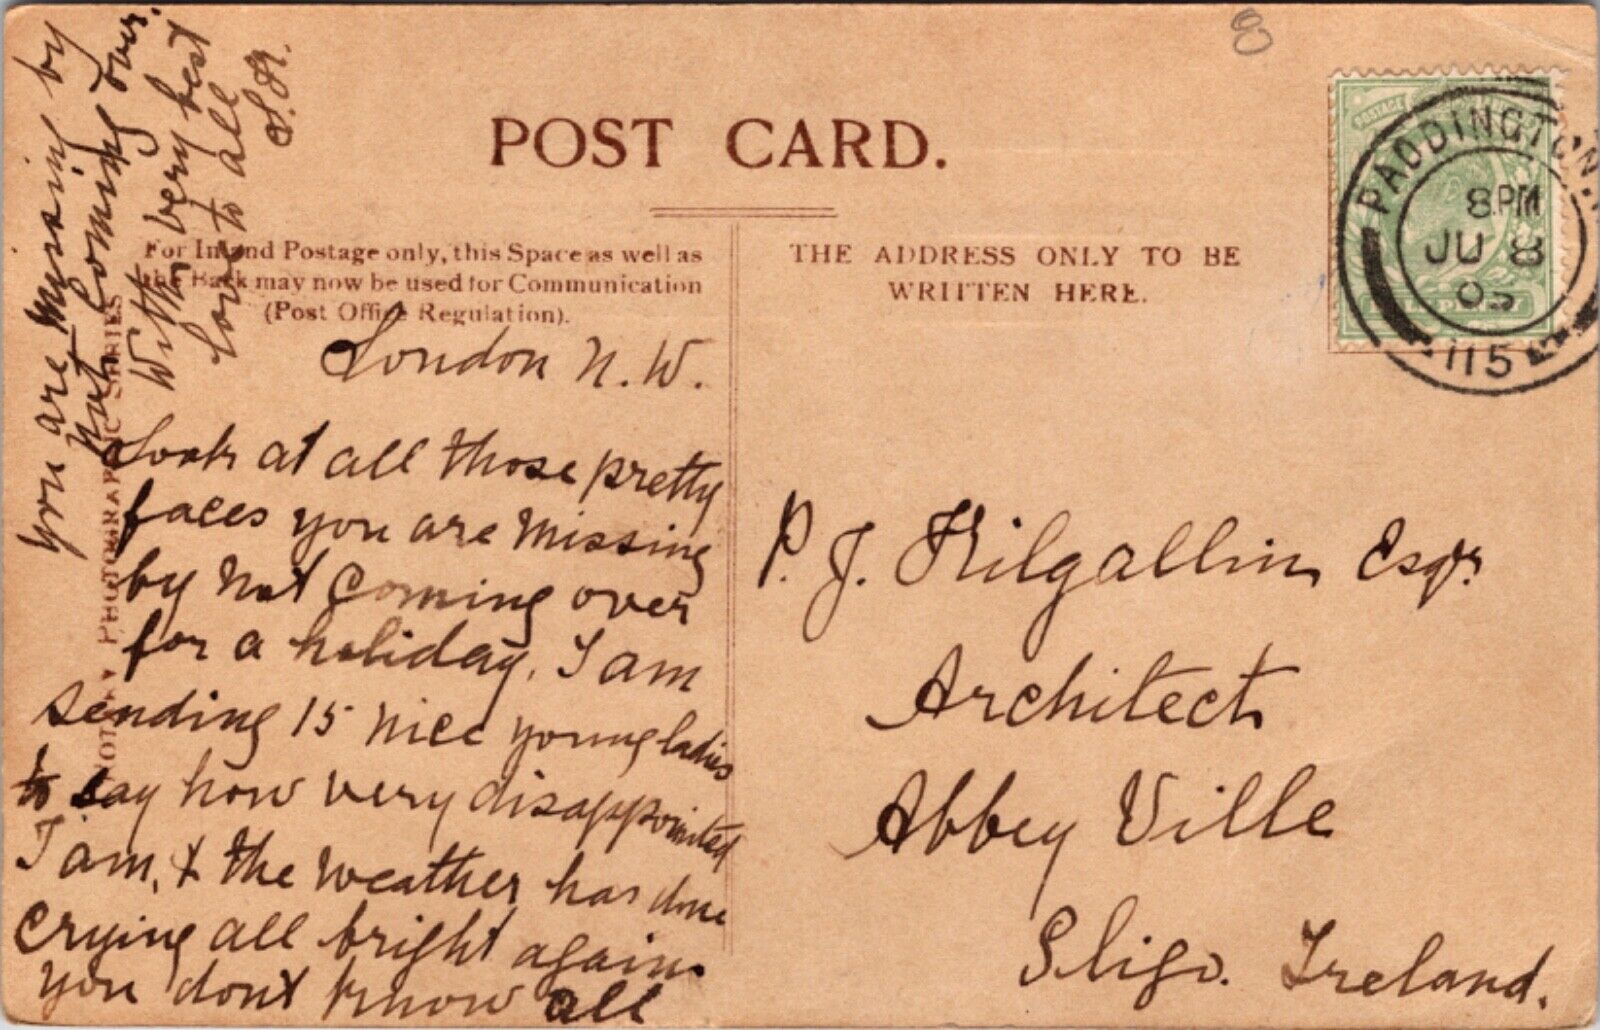 POST CARD.
For Inland Postage only, this Space as well as
the Back may now be used for Communication
(Post Office Regulation).
THE ADDRESS ONLY TO BE
WRITTEN HERE.
ROTARY PHOTOGRAPHIC SERIES
PADDINGTON.
8.PM
JU 8
05
115
POSTAGE
8
London N.W.
Look at all those pretty
faces you are missing
by not coming over
for a holiday. I am
sending 15 nice young ladies
to say how very disappointed
I am, & the weather has done
crying all bright again
you dont know all
you are missing by
not coming over.
With very best
love to all
P. J. Kilgallin Esqr.
Architect
Abbey Ville
Sligo. Ireland.